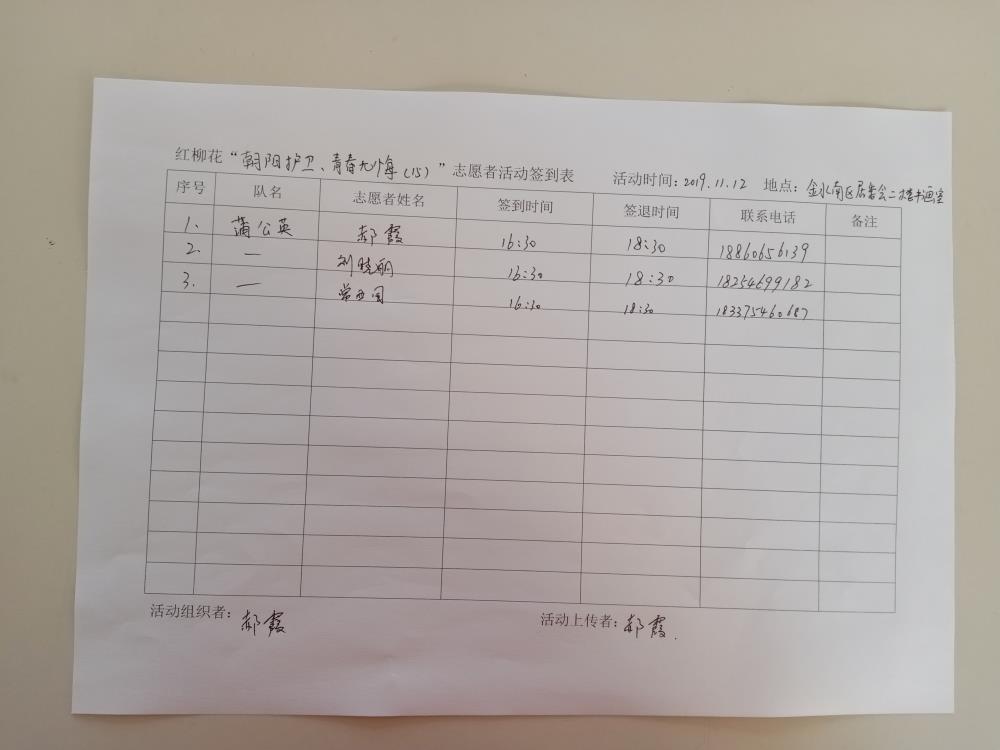 红柳花“朝阳护卫、青春无悔（15）”志愿者活动签到表 活动时间：2019.11.12 地点：金水南区居委会二楼书画室
序号 队名 志愿者姓名 签到时间 签退时间 联系电话 备注
1. 蒲公英 郝霞 16:30 18:30 18860656139
2. — 刘晓丽 16:30 18:30 18254699182
3. — 16:30 18:30 183375460687
活动组织者：郝霞 活动上传者：郝霞.